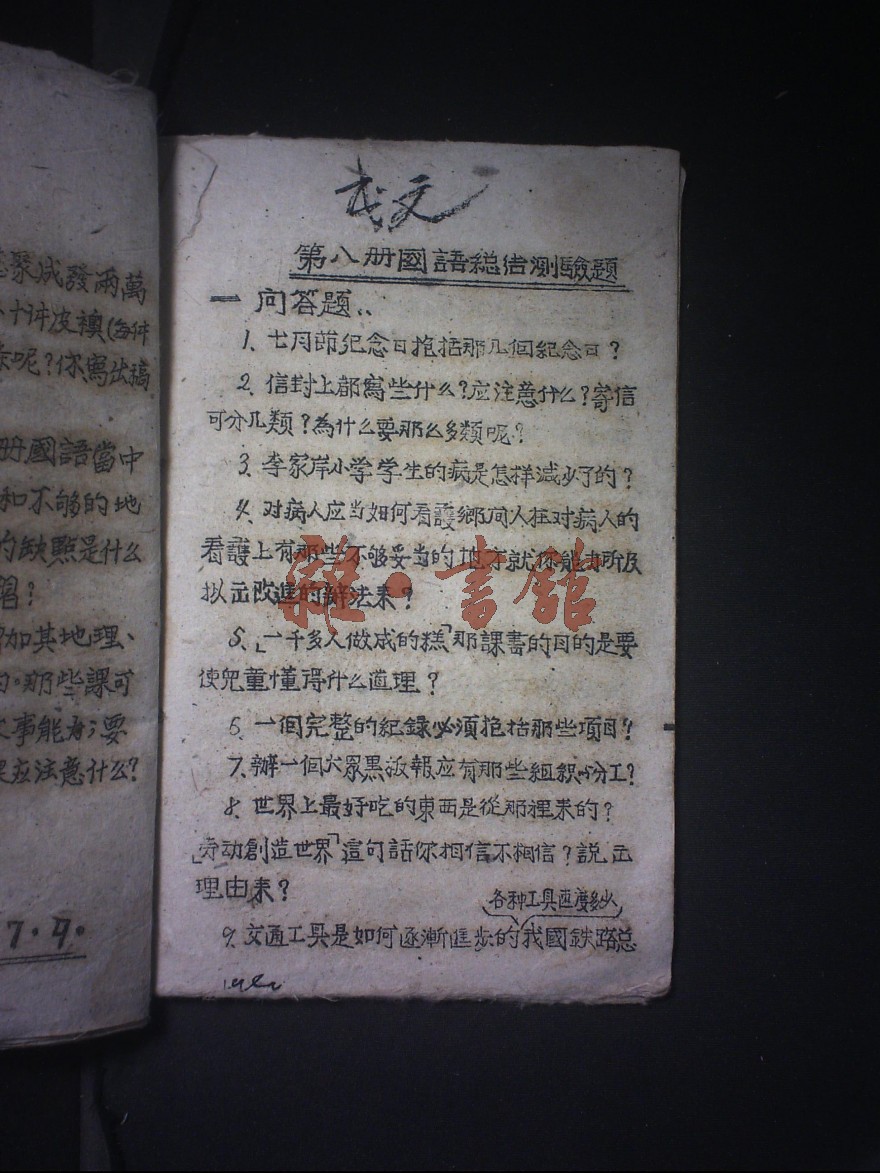 总聚成發兩萬
十件皮襖(每件
呢?你寫出稿
册國語當中
和不够的地
的缺點是什么
習?
加其地理、
。那些課可
事能者;要
应注意什么?
7.9.
文
第八册國語総结测驗題
一 问答题..
1、七月節纪念日抱括那几個紀念日?
2、信封上都寫些什么?应注意什么?寄信
可分几類?為什么要那么多類呢?
3、李家岸小学学生的病是怎样减少了的?
4、对病人应当如何看護鄉间人在对病人的
看護上有那些不够妥当的地方就你能力所及
拟出改進的辦法来?
5、「一千多人做成的糕」那課書的目的是要
使兒童懂得什么道理?
6、一個完整的紀録必須抱括那些項目?
7、辦一個大眾黑板報应有那些組織分工?
8、世界上最好吃的東西是從那裡来的?
「労动創造世界」這句話你相信不相信?説出
理由来?
各种工具速度多少
9、交通工具是如何逐漸進步的我國鉄路总
雜·書館